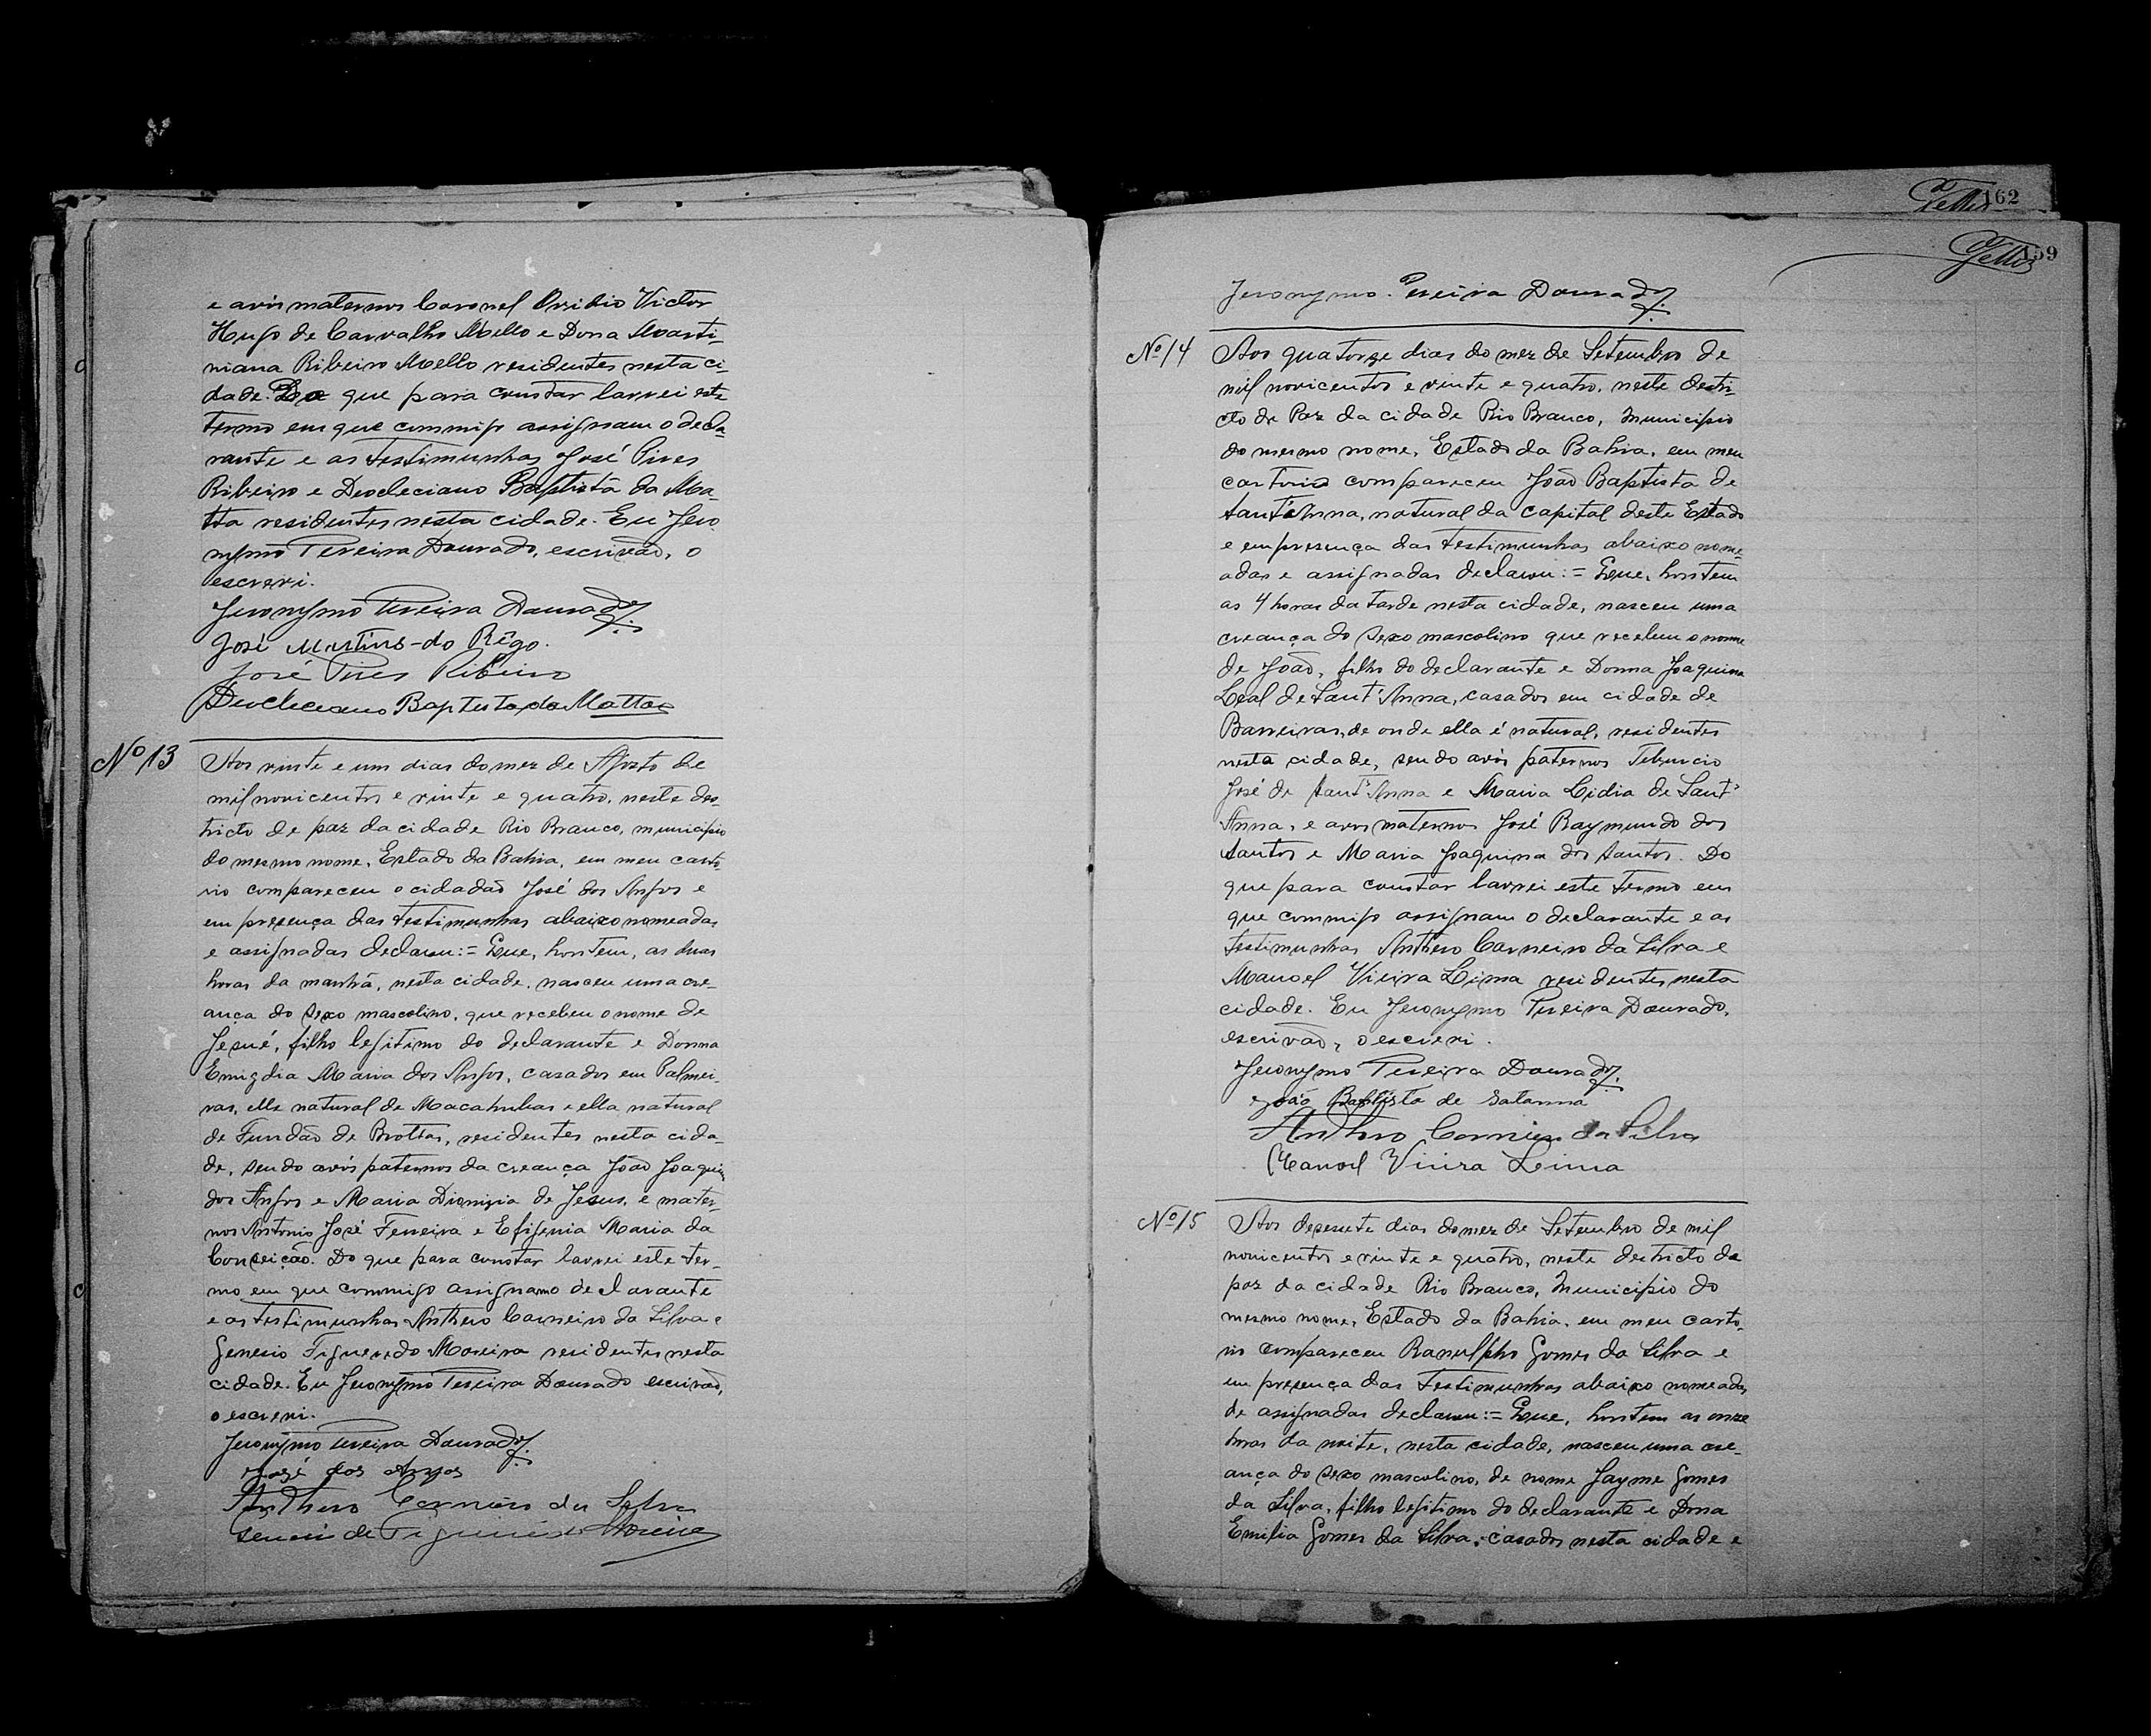 e avós maternos Coronel Ovidio Victor
Hugo de Carvalho Mello e Dona Marti-
niana Ribeiro Mello residentes nesta ci-
dade. Do que para constar lavrei este
termo em que commigo assignam o decla-
rante e as testimunhas José Pires
Ribeiro e Deocleciano Baptista da Ma-
tta residentes nesta cidade. Eu Jero
nymo Pereira Dourado, escrivão, o
escrevi.
Jeronymo Pereira Dourado
José Martins do Rêgo.
José Pires Ribeiro
Deocleciano Baptista da Matta
Nº 13
Aos vinte e um dias do mez de Agosto de
mil novicentos e vinte e quatro, neste des-
tricto de paz da cidade Rio Branco, municipio
do mesmo nome, Estado da Bahia, em meu carto-
rio compareceu o cidadão José dos Anjos e
em presença das testimunhas abaixo nomeadas
e assignadas declarou:= Que, hontem, as duas
horas da manhã, nesta cidade, nasceu uma cre-
ança do sexo mascolino, que recebeu o nome de
Jesué, filho legitimo do declarante e Donna
Emigdia Maria dos Anjos, casados em Palmei-
ras, elle natural de Macahubas e ella natural
de Fundão de Brottas, residentes nesta cida-
de, sendo avós paternos da creança João Joaquim
dos Anjos e Maria Dionizia de Jesus, e mater-
nos Antonio José Ferreira e Efigenia Maria da
Conceição. Do que para constar lavrei este ter-
mo em que commigo assignam o declarante
e as testimunhas Anthero Carneiro da Silva e
Genesio Figueredo Moreira residentes nesta
cidade. Eu Jeronymo Pereira Dourado escrivão,
o escrevi.
Jeronymo Pereira Dourado
José dos Anjos
Anthero Carneiro da Silva
de Figueiredo Moreira
162
159
Jeronymo Pereira Dourado
Nº 14
Aos quatorze dias do mez de Setembro de
mil novicentos e vinte e quatro, neste destri-
cto de Paz da cidade Rio Branco, Municipio
do mesmo nome, Estado da Bahia, em meu
cartorio compareceu João Baptista de
Sant'Anna, natural da Capital deste Estado
e em presença das testimunhas abaixo nome-
adas e assignadas declarou:= Que, hontem
as 4 horas da tarde nesta cidade, nasceu uma
creança do sexo mascolino que recebeu o nome
de João, filho do declarante e Donna Joaquina
Leal de Sant'Anna, casados em cidade de
Barreiras, de onde ella é natural, residentes
nesta cidade, sendo avós paternos Tiburcio
José de Sant'Anna e Maria Lidia de Sant'
Anna, e avós maternos José Raymundo dos
Santos e Maria Joaquina dos Santos. Do
que para constar lavrei este termo em
que commigo assignam o declarante e as
testimunhas Anthero Carneiro da Silva e
Manoel Vieira Lima residentes nesta
cidade. Eu Jeronymo Pereira Dourado,
escrivão, o escrevi.
Jeronymo Pereira Dourado
João Baptista de Satanna
Anthero Carneiro da Silva
Manoel Vieira Leima
Nº 15
Aos desesete dias do mez de Setembro de mil
novicentos e vinte e quatro, neste destricto de
paz da cidade Rio Branco, Municipio do
mesmo nome, Estado da Bahia, em meu carto-
rio compareceu Ranulpho Gomes da Silva e
em presença das testimunhas abaixo nomeadas
de assignadas declarou:= Que, hontem as onze
horas da noite, nesta cidade, nasceu uma cre-
ança do sexo mascolino, de nome Jayme Gomes
da Silva, filho legitimo do declarante e Dona
Emilia Gomes da Silva, casados nesta cidade e